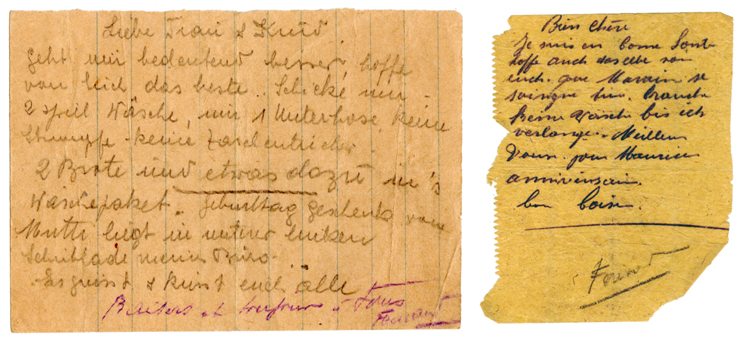 Liebe Frau & Kind
geht mir bedeutend besser, hoffe
von Eich das beste. Schicke mir
2 Spiel Wäsche, nur 1 Unterhose keine
Strumpfe - keine Taschentücher
2 Brote und etwas dazu in's
Wäschepaket. Geburttag geschenk von
Mutti liegt in unterer linken
Schublade meines Büro.
Es grüsst & küsst euch alle
Baisers et toujours à Vous
Bien chère
Je suis en bonne Santé
hoffe auch dasselbe von
euch. que se
soingne bien. Brauche
keine Wäsche bis ich
verlange. Meilleurs
Voeux pour Maurice
anniversaire.
bon